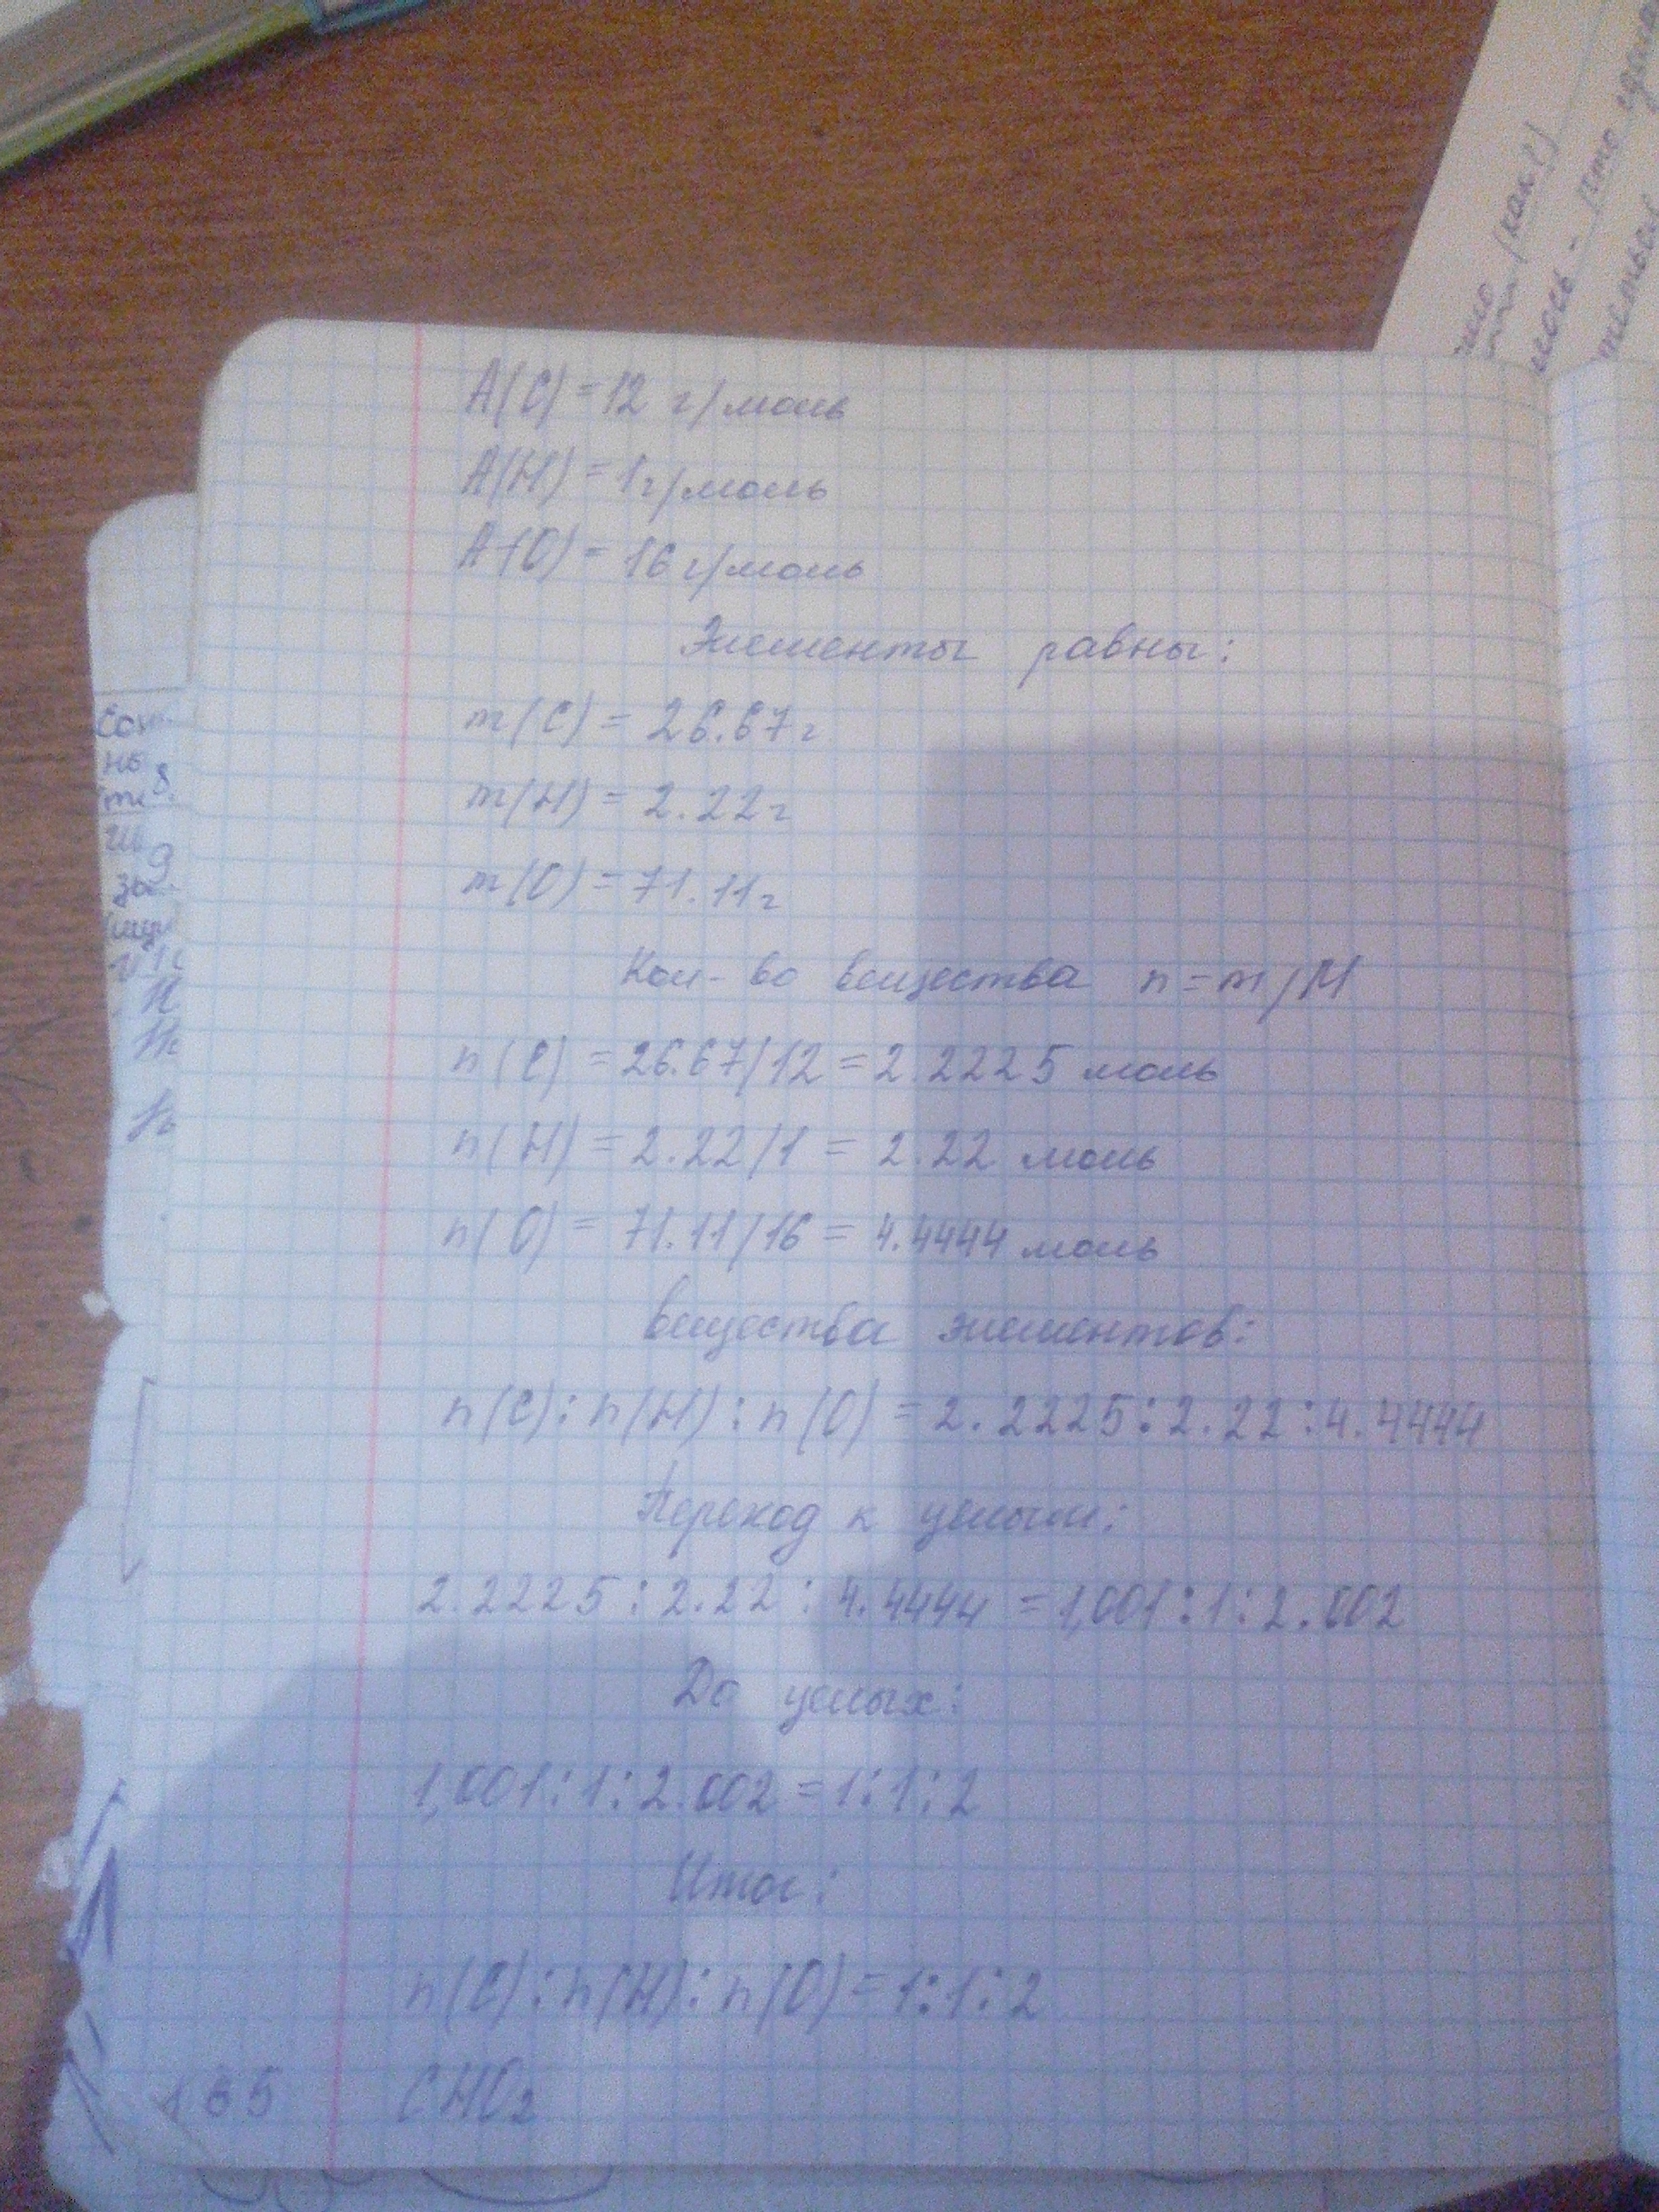 A(C) = 12 г/моль
A(H) = 1г/моль
A(O) = 16 г/моль
Элементы равны:
m(C) = 26.67г
m(H) = 2.22г
m(O) = 71.11г
Кол-во вещества n=m/M
n(C) = 26.67/12 = 2.2225 моль
n(H) = 2.22/1 = 2.22 моль
n(O) = 71.11/16 = 4.4444 моль
вещества элементов:
n(C):n(H):n(O) = 2.2225:2.22:4.4444
Переход к целым:
2.2225:2.22:4.4444 = 1,001:1:2.002
До целых:
1,001:1:2.002 = 1:1:2
Итог:
n(C):n(H):n(O) = 1:1:2
165 CHO2